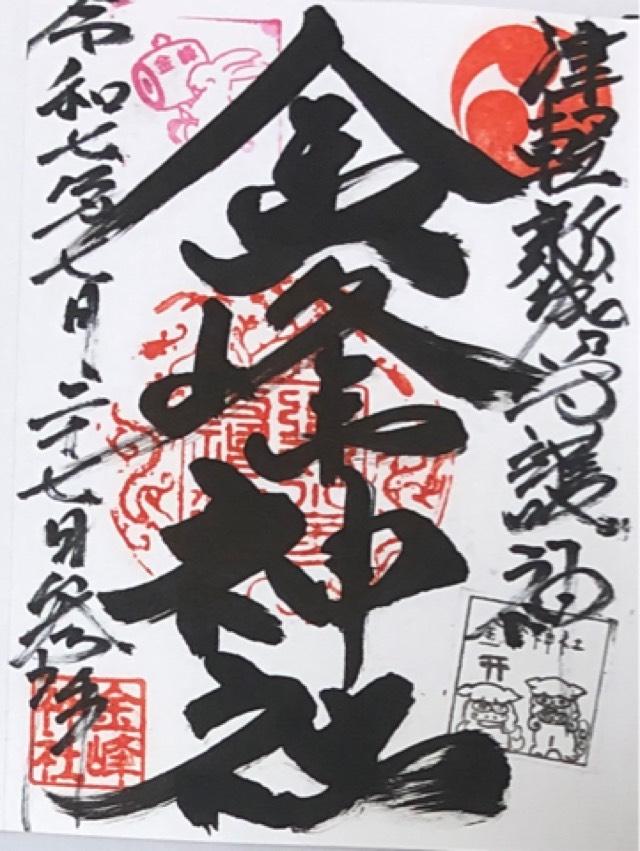 津軽新城守護神
金峰神社
令和七年七月二十七日参拝
金峰
金峰神社
金峰神社